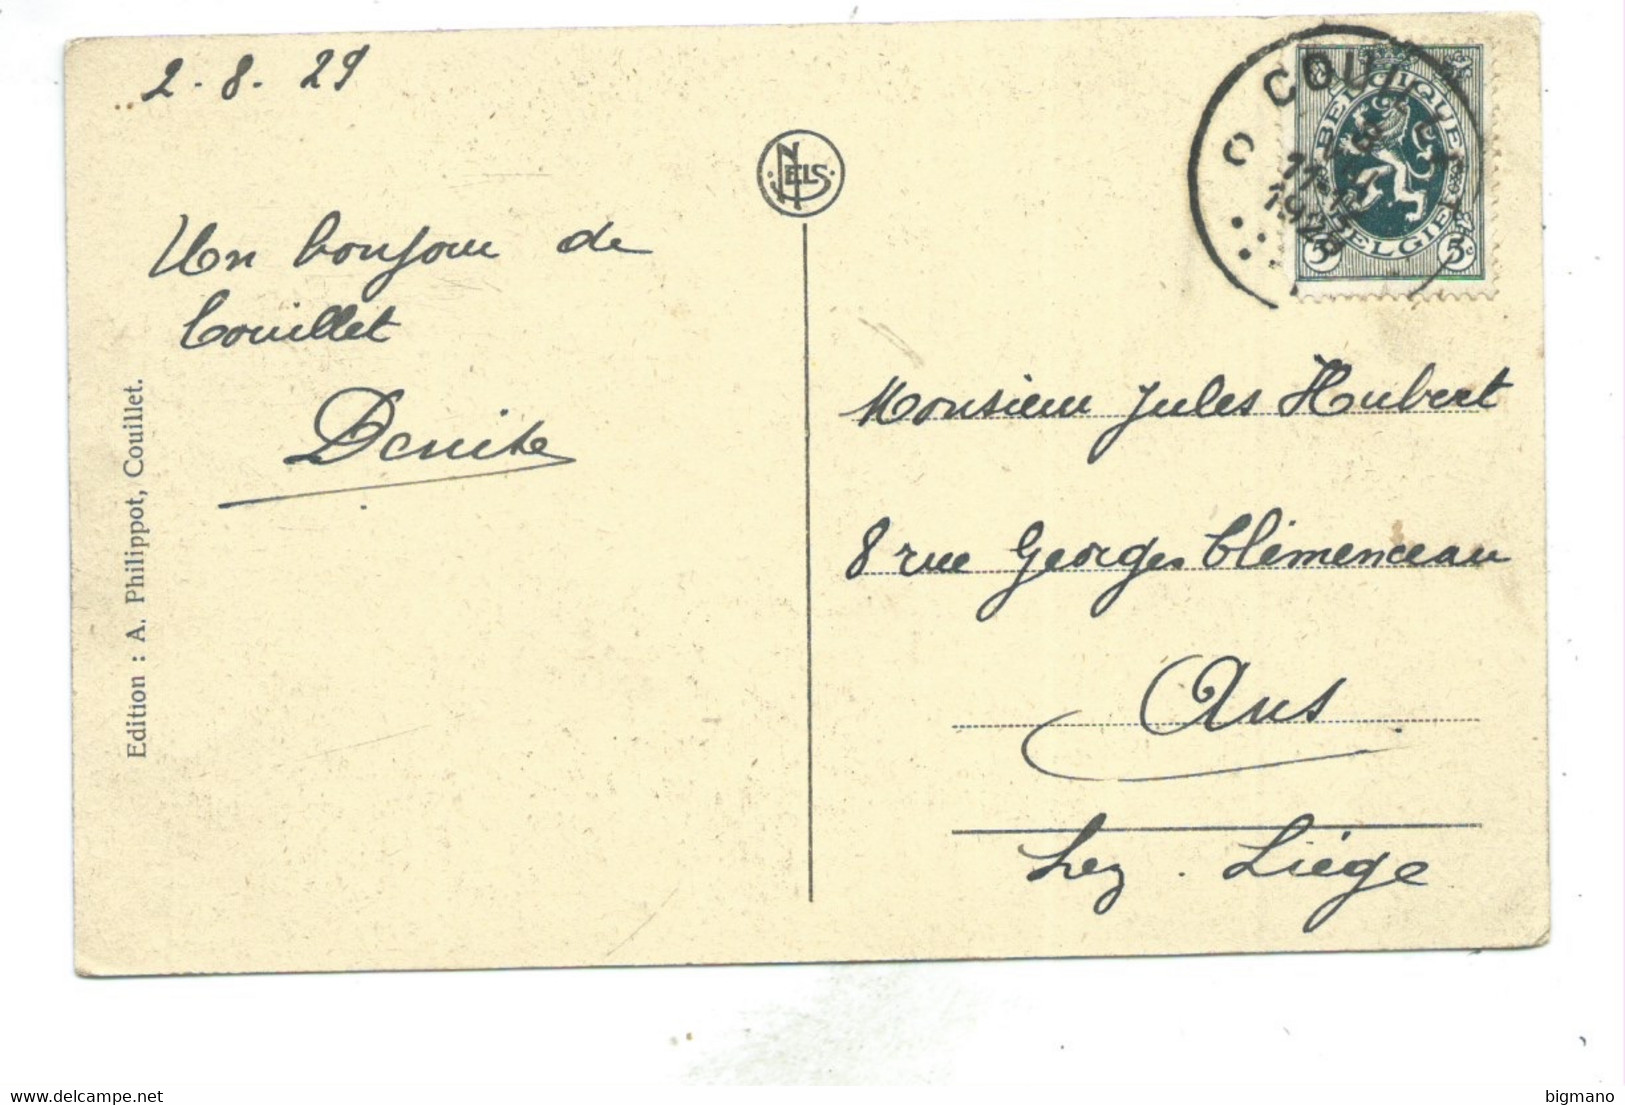 2-8.29
NELS
COUILLET
1929
BELGIQUE
BELGIE
5c 5c
Un bonjour de
Couillet
Denise
Edition : A. Philippot, Couillet.
Monsieur Jules Hubert
8 rue Georges Clémenceau
Ans
Lez. Liége
www.delcampe.net
bigmano